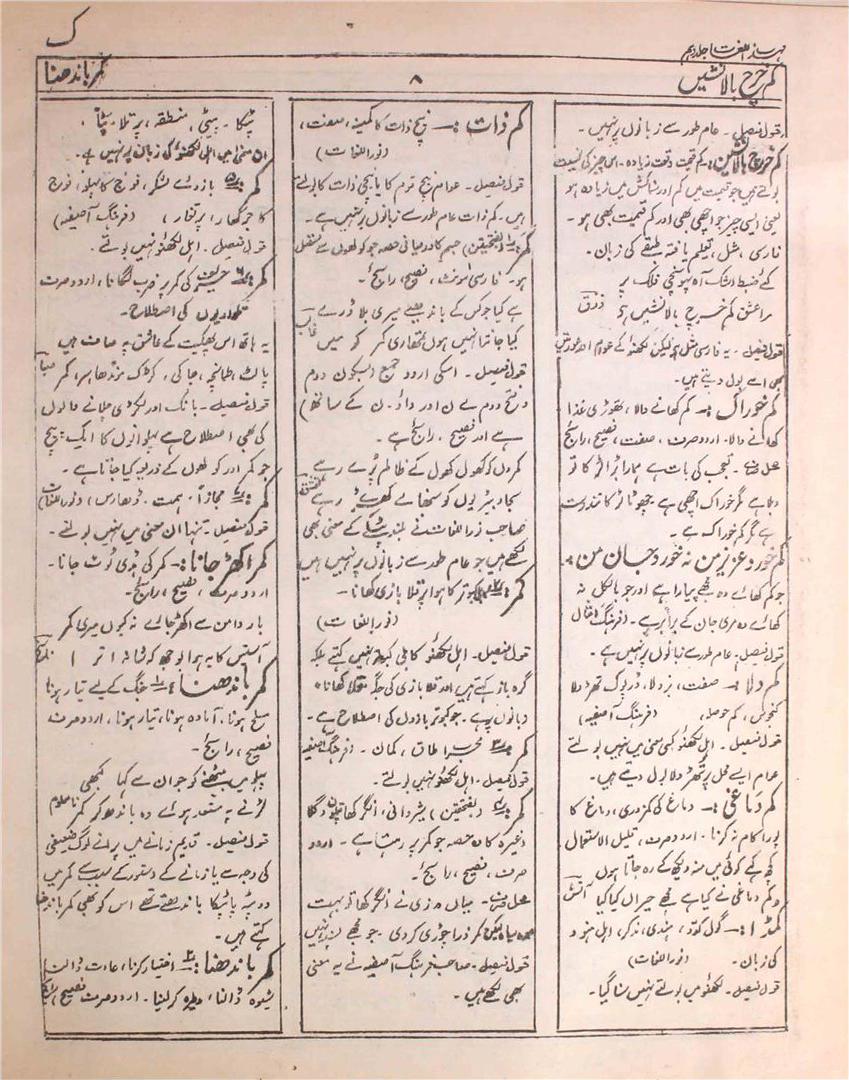 ک
مہذب اللغات جلد دہم
کم خرچ بالا نشیں
۸
کمر باندھنا
قول فیصل۔ عام طور سے زبانوں پر نہیں۔
کم خرچ بالا نشین:۔ کم قیمت وقعت زیادہ۔ اس چیز کی نسبت
بولتے ہیں جو قیمت میں کم اور نمائش میں زیادہ ہو
یعنی ایسی چیز جو اچھی بھی اور کم قیمت بھی ہو۔
فارسی، مثل، تعلیم یافتہ طبقے کی زبان۔
کئے ضبط اشک آہ پہونچی فلک پر
مرا عشق کم خرچ بالا نشیں ہے ذوق
قول فیصل۔ یہ فارسی مثل ہے لیکن لکھنؤ کے عوام اور عورتیں
بھی اسے بول دیتے ہیں۔
کم خوراک:۔ کم کھانے والا، تھوڑی غذا
کھانے والا۔ اردو صرف، صفت، فصیح، رائج
محل صرف۔ تعجب کی بات ہے ہمارا بڑا لڑکا تو
دبلا ہے مگر خوراک اچھی ہے چھوٹا لڑکا تندرست
ہے مگر کم خوراک ہے۔
کم خورد عزیز من نہ خورد جان من۔
جو کم کھائے وہ مجھے پیارا ہے اور جو بالکل نہ
کھائے وہ میری جان کے برابر ہے۔ (فرہنگ امثال
قول فیصل۔ عام طور سے زبانوں پر نہیں ہے۔
کم دلا:۔ صفت، بزدلا، ڈرپوک تھڑ دلا
کنجوس، کم حوصلہ، (فرہنگ آصفیہ)
قول فیصل۔ اہل لکھنؤ کسی معنی میں نہیں بولتے
عوام ایسے محل پر تھڑ دلا بول دیتے ہیں۔
کم دماغی:۔ دماغ کی کمزوری، دماغ کا
پورا کام نہ کرنا۔ اردو صرف، قلیل الاستعمال
کچھ کہے کوئی میں منہ دیکھ کے رہ جاتا ہوں
کم دماغی نے کیا ہے مجھے حیراں کیا کیا آتش
کمڈا:۔ گول کدو، ہندی، مذکر، اہل ہنود
کی زبان۔ (نور اللغات)
قول فیصل۔ لکھنؤ میں بولتے نہیں سنا گیا۔
کم ذات:۔ نیچ ذات کا کمینہ، صفت،
(نور اللغات)
قول فیصل۔ عوام نیچ قوم کا یا نیچی ذات کا بولتے
ہیں۔ کم ذات عام طور سے زبانوں پر نہیں ہے۔
کمر:۔ (بفتحتین) جسم کا درمیانی حصہ جو کولھوں سے متصل
ہو۔ فارسی، مونث، فصیح، رائج۔
ہے کیا جو کس کے باندھیے میری بلا ڈرے
کیا جانتا نہیں ہوں تمھاری کمر کو میں غالب
قول فیصل۔ اسکی اردو جمع (بسکون دوم
و فتح دوم ے ن اور داؤ۔ ن کے ساتھ)
ہے اور فصیح۔ رائج ہے۔
کمروں کو کھول کھول کے ظالم پڑے رہے
سجاد بیڑیوں کو سنبھالے کھڑے رہے
صاحب نور اللغات نے بلند پشتے کے معنی بھی
لکھے ہیں جو عام طور سے زبانوں پر نہیں ہیں
کمر:۔ کبوتر کا ہوا پر قلا بازی کھانا۔
(نور اللغات)
قول فیصل۔ اہل لکھنؤ کالی کبوتر نہیں کہتے بلکہ
گرہ باز کہتے ہیں اور قلا بازی کی جگہ کھانا
زبانوں پر ہے۔ جو کبوتر بازوں کی اصطلاح ہے۔
کمر:۔ محراب طاق، کمان۔ (فرہنگ آصفیہ
قول فیصل۔ اہل لکھنؤ نہیں بولتے۔
کمر:۔ (بفتحتین) شیروانی، انگرکھا، پتلون، دگلا
وغیرہ کا وہ حصہ جو کمر پر رہتا ہے۔ اردو
صرف، فصیح، رائج۔
محل صرف۔ میاں درزی نے انگرکھا تو بہت
عمدہ سیا لیکن کمر ذرا چوڑی کر دی۔ جو مجھے پسند نہیں
قول فیصل۔ صاحب فرہنگ آصفیہ نے یہ معنی
بھی لکھے ہیں۔
پٹکا۔ پیٹی، منطقہ، پرتلا۔ پٹا۔
ان معنی میں اہل لکھنؤ کی زبان پر نہیں ہے۔
کمر:۔ بازوئے لشکر، فوج کا پہلو، فوج
کا (فرہنگ آصفیہ)
قول فیصل۔ اہل لکھنؤ نہیں بولتے۔
کمر:۔ حریف کی کمر پر ضرب لگانا، اردو صرف
کی اصطلاح۔
یہ ہاتھ اس پھکیت کے عاشق پہ صاف ہیں
پالٹ، طمانچہ، جاکی، کڑک مونڈھا سر، کمر صبا
قول فیصل۔ بانک اور لکڑی چلانے والوں
کی بھی اصطلاح ہے پہلوانوں کا ایک پیچ
جو کمر اور کولھوں کے ذریعہ کیا جاتا ہے۔
کمر:۔ مجازاً۔ ہمت۔ ڈھارس، (نور اللغات
قول فیصل۔ تنہا ان معنی میں نہیں بولتے۔
کمر اکھڑ جانا:۔ کمر کی ہڈی ٹوٹ جانا۔
اردو صرف، فصیح، رائج۔
بار دامن سے اکھڑ جائے نہ کیوں میری کمر
آستیں کا یہ ہوا بوجھ کہ شانہ اترا ناسخ
کمر باندھنا:۔ جنگ کے لیے تیار ہونا
مسلح ہونا، آمادہ ہونا، تیار ہونا، اردو صرف
فصیح، رائج۔
پہلو میں بیٹھنے کو جو ان سے کہا کبھی
لڑنے پہ مستعد ہوئے وہ باندھ کر کمر نامعلوم
قول فیصل۔ قدیم زمانے میں پرانے لوگ ضعیفی
کی وجہ سے یا زمانے کے دستور کے سبب سے کمر میں
دوپٹہ یا پٹکا باندھتے تھے اس کو بھی کمر باندھنا
کہتے ہیں۔
کمر باندھنا:۔ اختیار کرنا، عادت ڈالنا،
شیوہ ڈالنا، وطیرہ کر لینا۔ اردو صرف فصیح، رائج